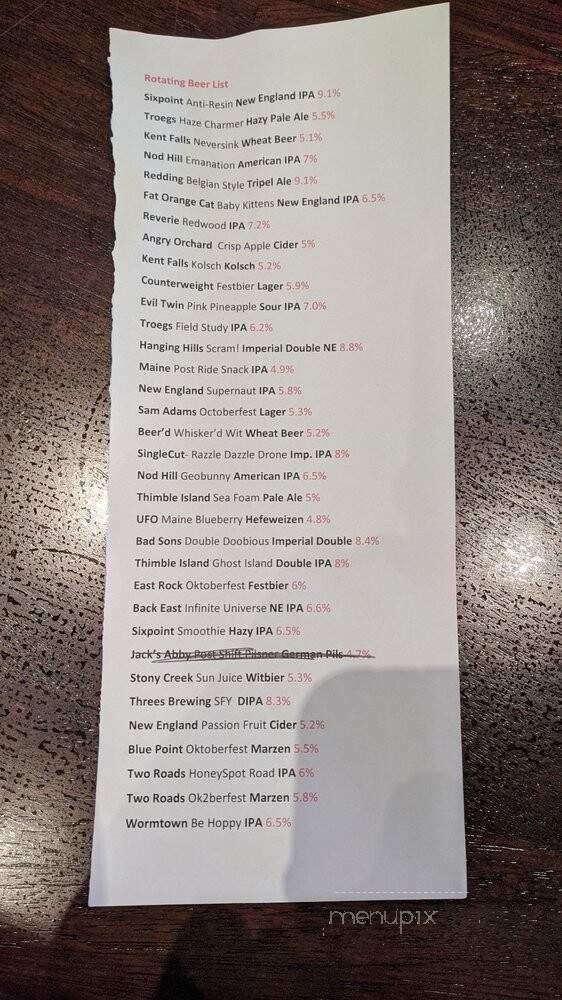 Rotating Beer List
Sixpoint Anti-Resin New England IPA 9.1%
Troegs Haze Charmer Hazy Pale Ale 5.5%
Kent Falls Neversink Wheat Beer 5.1%
Nod Hill Emanation American IPA 7%
Redding Belgian Style Tripel Ale 9.1%
Fat Orange Cat Baby Kittens New England IPA 6.5%
Reverie Redwood IPA 7.2%
Angry Orchard Crisp Apple Cider 5%
Kent Falls Kolsch Kolsch 5.2%
Counterweight Festbier Lager 5.9%
Evil Twin Pink Pineapple Sour IPA 7.0%
Troegs Field Study IPA 6.2%
Hanging Hills Scram! Imperial Double NE 8.8%
Maine Post Ride Snack IPA 4.9%
New England Supernaut IPA 5.8%
Sam Adams Octoberfest Lager 5.3%
Beer'd Whisker'd Wit Wheat Beer 5.2%
SingleCut- Razzle Dazzle Drone Imp. IPA 8%
Nod Hill Geobunny American IPA 6.5%
Thimble Island Sea Foam Pale Ale 5%
UFO Maine Blueberry Hefeweizen 4.8%
Bad Sons Double Doobious Imperial Double 8.4%
Thimble Island Ghost Island Double IPA 8%
East Rock Oktoberfest Festbier 6%
Back East Infinite Universe NE IPA 6.6%
Sixpoint Smoothie Hazy IPA 6.5%
Jack's Abby Post Shift Pilsner German Pils 4.7%
Stony Creek Sun Juice Witbier 5.3%
Threes Brewing SFY DIPA 8.3%
New England Passion Fruit Cider 5.2%
Blue Point Oktoberfest Marzen 5.5%
Two Roads HoneySpot Road IPA 6%
Two Roads Ok2berfest Marzen 5.8%
Wormtown Be Hoppy IPA 6.5%
menupix